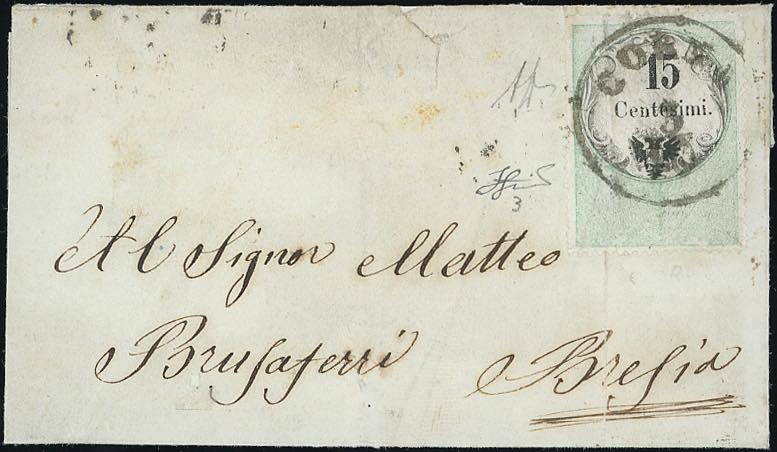 15
Centesimi.
3
Al Signor Matteo
Brusaferri Bresia